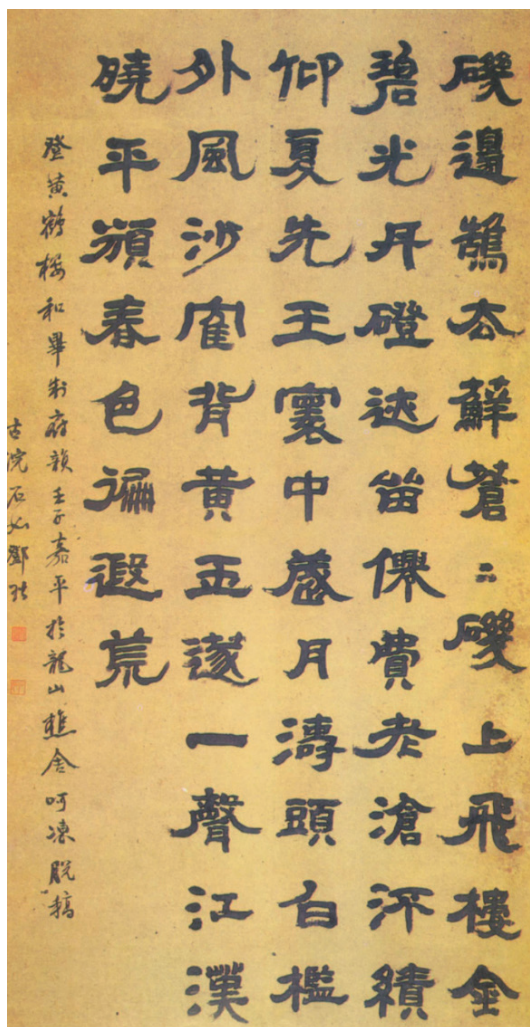 磯邊鵠去蘚蒼〻磯上飛樓金
碧光丹磴迹留僊費老滄沔績
仰夏先王寰中歲月濤頭白檻
外風沙隺背黄玉篴一聲江漢
曉平蘋春色徧遐荒
登黄鶴樓和畢制府韻壬子嘉平於龍山樵舍呵凍脱稿
古浣石如鄧琰